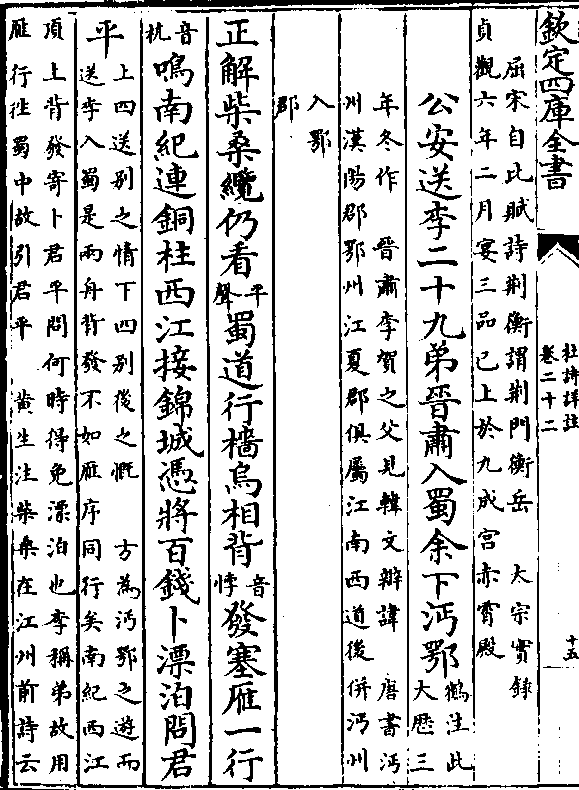 欽定四庫全書
杜詩詳註
卷二十二
十五
屈宋自此賦詩荆衡謂荆門衡岳　太宗實錄
貞觀六年二月宴三品已上於九成宫赤霄殿
公安送李二十九弟晉肅入蜀余下沔鄂
鶴注此
大歴三
年冬作　晉肅李賀之父見韓文辯諱　唐書沔
州漢陽郡鄂州江夏郡俱屬江南西道後併沔州
入鄂
郡
正解柴桑纜仍看
平
聲
蜀道行檣烏相背
音
悖
發塞雁一行
音
杭
鳴南紀連銅柱西江接錦城憑將百錢卜漂泊問君
平
上四送别之情下四别後之慨　方為沔鄂之遊而
送李入蜀是兩舟背發不如雁序同行矣南紀西江
頂上背發寄卜君平問何時得免漂泊也李稱弟故用
雁行徃蜀中故引君平　黄生注柴桑在江州前詩云